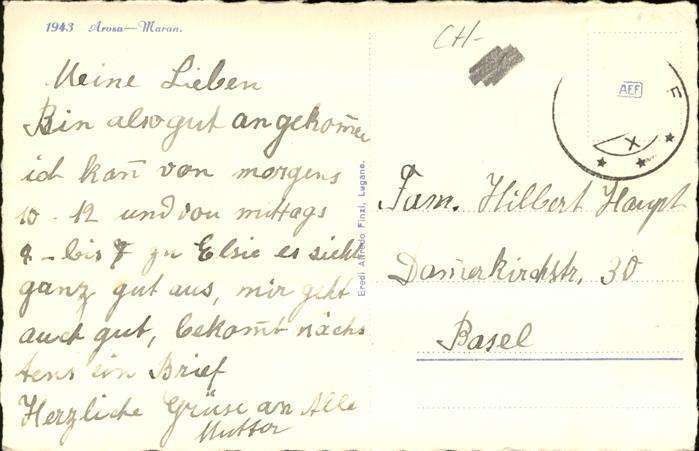 1943 Arosa—Maran.
CH-
Meine Lieben
Bin also gut angekom̄en
ich kan̄ von morgens
10 - 12 und von mittags
2 - bis 7 zu Elsie es sieht
ganz gut aus, mir geht
auch gut, bekom̄t nächs
tens ein Brief
Herzliche Grüse an Alle
Mutter
Eredi Alfredo Finzi, Lugano.
AEF
Fam. Hilbert Haupt
Dam̄erkirchstr. 30
Basel